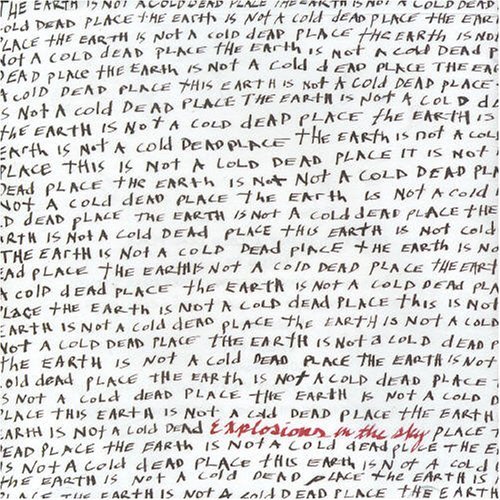 THE EARTH IS NOT A COLD DEAD PLACE THE EARTH IS NOT A COLD DEAD
old DEAD PLACE the EARTH IS NOT A COLD DEAD PLACE THE EAR
LACE tHE EARTH IS NOT A cold DEAD PLACE tHE EARTH IS NO
NOT A COLD DEAD PLACE THE EARTH IS NOT A COLD DEAD P
DEAD PLACE tHE EARTH IS NOT A cold dEAD PLACE THE EA
A COLD DEAD PLACE THIS EARTH IS NOT A COLD DEAD PLACE
S NOT A cold DEAD PLACE THE EARTH IS NOT A COLD dE
the EARTH IS NOT A cold DEAD PLACE the EARTH IS
EARTH IS NOT A cold DEAD PLACE THE EARTH IS NOT A COL
PLACE THIS IS NOT A COLD DEAD PLACE IT IS NOT
DEAD PLACE tHE EARTH IS NOT NOT A COLD DEAD PL
NOT A COLD DEAD PLACE THE EARTH IS NOT A COLD
D DEAD PLACE THE EARTH IS NOT A COLD DEAD PLACE tHE
RTH IS NOT A COLD DEAD PLACE THIS EARTH IS NOT COLD
THE EARTH IS NOT A COLD DEAD PLACE tHE EARTH IS NO
EAD PLACE tHE EARTH IS NOT A COLD DEAD PLACE tHE EART
A COLD dEAD PLACE tHE EARTH IS NOT A COLD DEAD PLA
LACE tHE EARTH IS NOT A COLD DEAD PLACE tHIS IS NOT
EARTH IS NOT A cold dEAD PLACE tHE EARTH IS NOT A COLD
NOT A COLD DEAD PLACE THE EARTH IS NOT A COLD dEAD P
tHE EARTH IS NOT A Cold DEAD PLACE THE EARTH IS NOT
old dead PLACE tHE EARTH IS NOT A COLD DEAD PLACE
S NOT A COLD dEAD PLACE tHE EARTH IS NOT A COLD
PLACE tHIS EARTH IS NOT A cold DEAD PLACE tHE EARTH
EARTH IS NOT A COLD DEAD Explosions in the sky PLACE T
EAD PLACE tHE EARTH IS NOT A COLD dEAD PLACE THE E
IS NOT A COLD DEAD PLACE tHIS EARTH IS NOT A COLD
PLACE tHE EARTH IS NOT A COLD DEAD PLACE tHE EARTH
LACE tHE EARTH IS NOT A COLD DEAD PLACE tHE EART